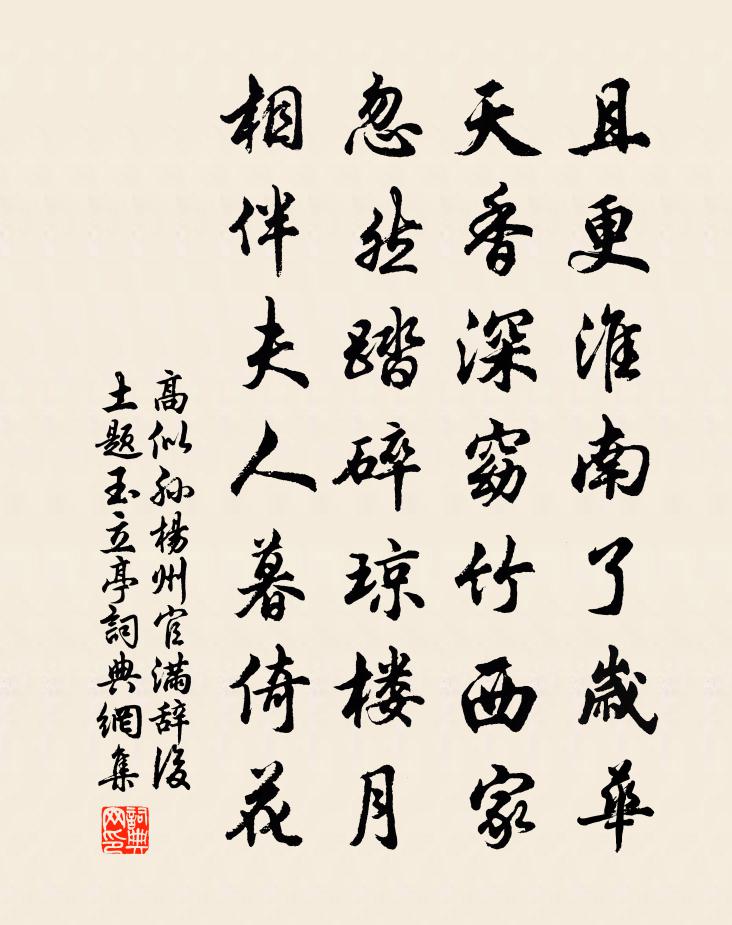 且更淮南了歲華
天香深窈竹西家
忽然踏碎琼楼月
相伴夫人暮倚花
高似孙楊州官满辞後
土题玉立亭詞典網集
詞典网印